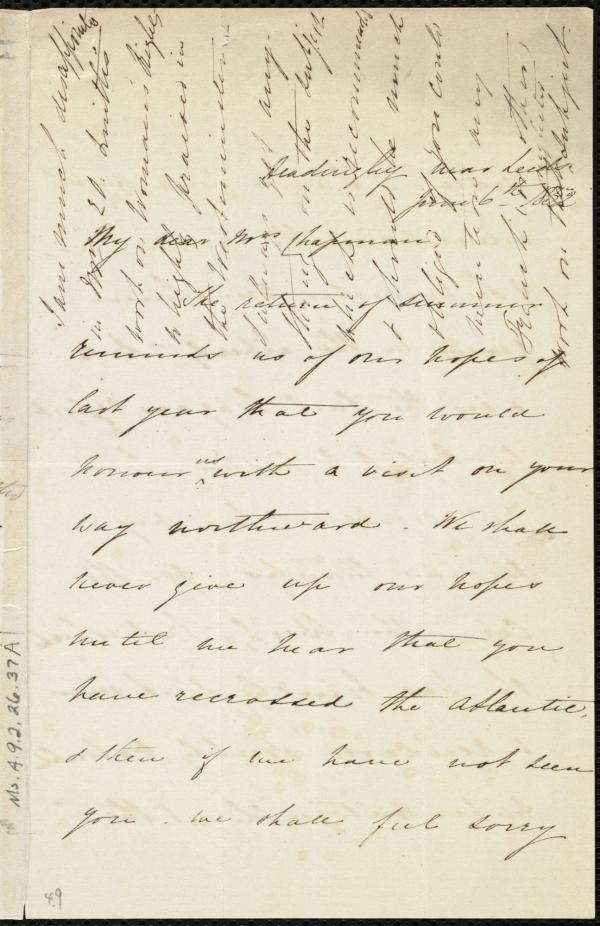 Headingley near Leeds
June 6th 1852
My dear Mrs Chapman
The return of summer
reminds us of our hopes of
last year that you would
honour us with a visit on your
way northward. We shall
never give up our hopes
until we hear that you
have recrossed the Atlantic,
& then if we have not seen
you. we shall feel sorry
I am much disappointed
in Smith's
work on Woman is highly
praised in
the Westminster
any
thing on the subject
which is recommended
& should be much
obliged if you could
mention any
French or other
work on the subject
Ms. A. 9.2. 26. 37A
49